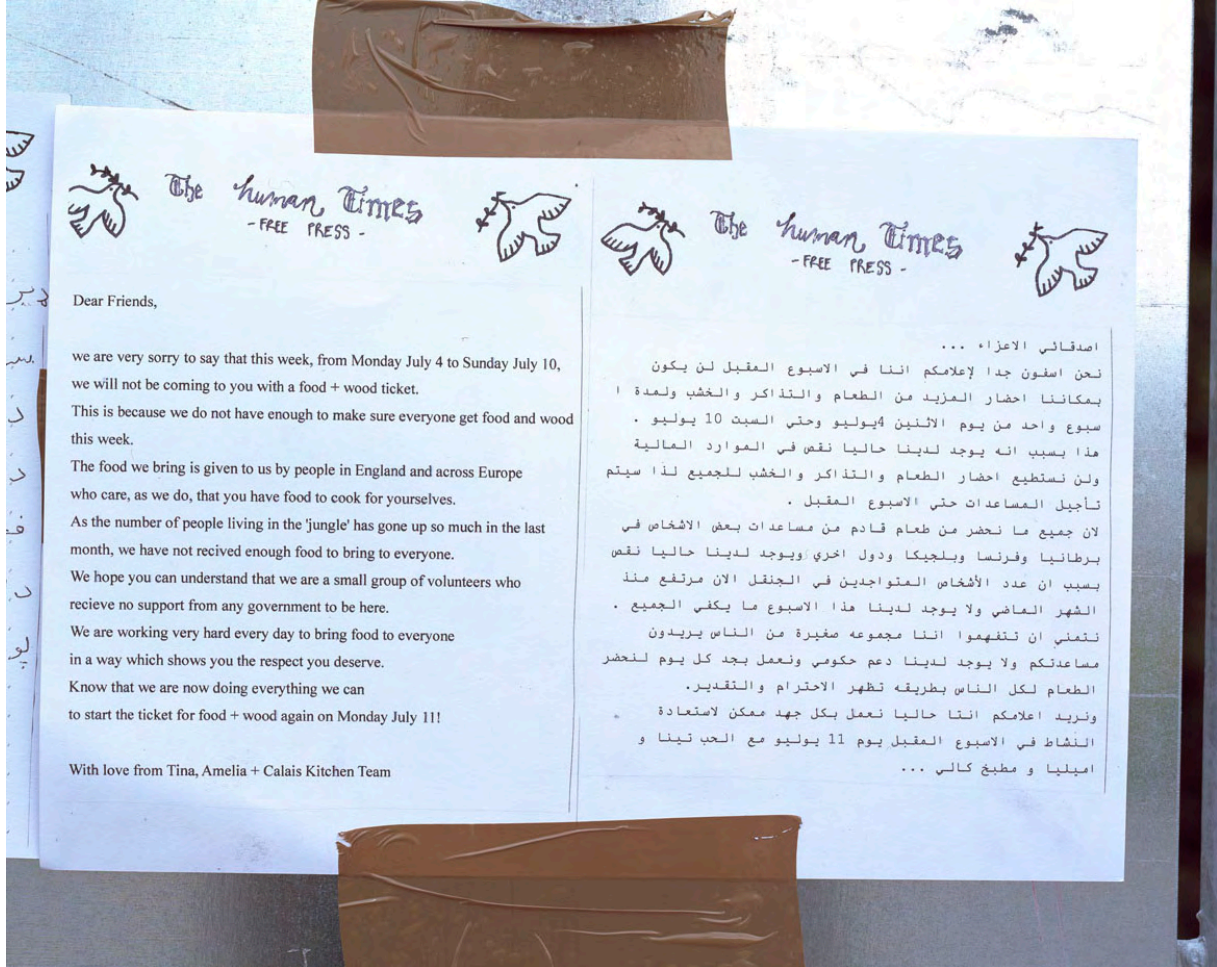 The human Times
- FREE PRESS -
Dear Friends,
we are very sorry to say that this week, from Monday July 4 to Sunday July 10,
we will not be coming to you with a food + wood ticket.
This is because we do not have enough to make sure everyone get food and wood
this week.
The food we bring is given to us by people in England and across Europe
who care, as we do, that you have food to cook for yourselves.
As the number of people living in the 'jungle' has gone up so much in the last
month, we have not recived enough food to bring to everyone.
We hope you can understand that we are a small group of volunteers who
recieve no support from any government to be here.
We are working very hard every day to bring food to everyone
in a way which shows you the respect you deserve.
Know that we are now doing everything we can
to start the ticket for food + wood again on Monday July 11!
With love from Tina, Amelia + Calais Kitchen Team
The human Times
- FREE PRESS -
اصدقائي الاعزاء ...
نحن اسفون جدا لإعلامكم اننا في الاسبوع المقبل لن يكون
بمكاننا احضار المزيد من الطعام والتذاكر والخشب ولمدة ا
سبوع واحد من يوم الاثنين 4يوليو وحتي السبت 10 يوليو .
هذا بسبب انه يوجد لدينا حاليا نقص في الموارد المالية
ولن نستطيع احضار الطعام والتذاكر والخشب للجميع لذا سيتم
تأجيل المساعدات حتي الاسبوع المقبل .
لان جميع ما نحضر من طعام قادم من مساعدات بعض الاشخاص في
برطانيا وفرنسا وبلجيكا ودول اخري ويوجد لدينا حاليا نقص
بسبب ان عدد الأشخاص المتواجدين في الجنقل الان مرتفع منذ
الشهر الماضي ولا يوجد لدينا هذا الاسبوع ما يكفي الجميع .
نتمني ان تتفهموا اننا مجموعه صغيرة من الناس يريدون
مساعدتكم ولا يوجد لدينا دعم حكومي ونعمل بجد كل يوم لنحضر
الطعام لكل الناس بطريقه تظهر الاحترام والتقدير.
ونريد اعلامكم انتا حاليا نعمل بكل جهد ممكن لاستعادة
النشاط في الاسبوع المقبل يوم 11 يوليو مع الحب تينا و
اميليا و مطبخ كالي ...